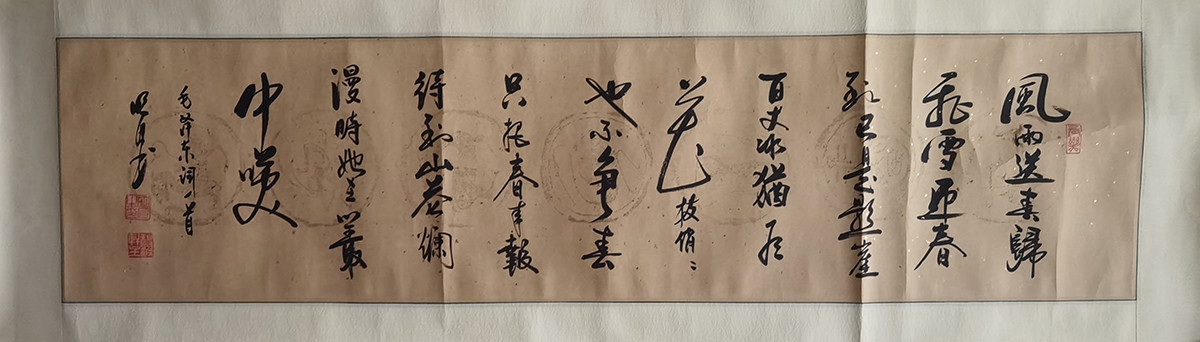 風雨送春歸
飛雪迎春
到已是懸崖
百丈冰猶有
花枝俏〻
也不争春
只把春来報
待到山花爛
漫時她在叢
中咲
毛泽东词一首